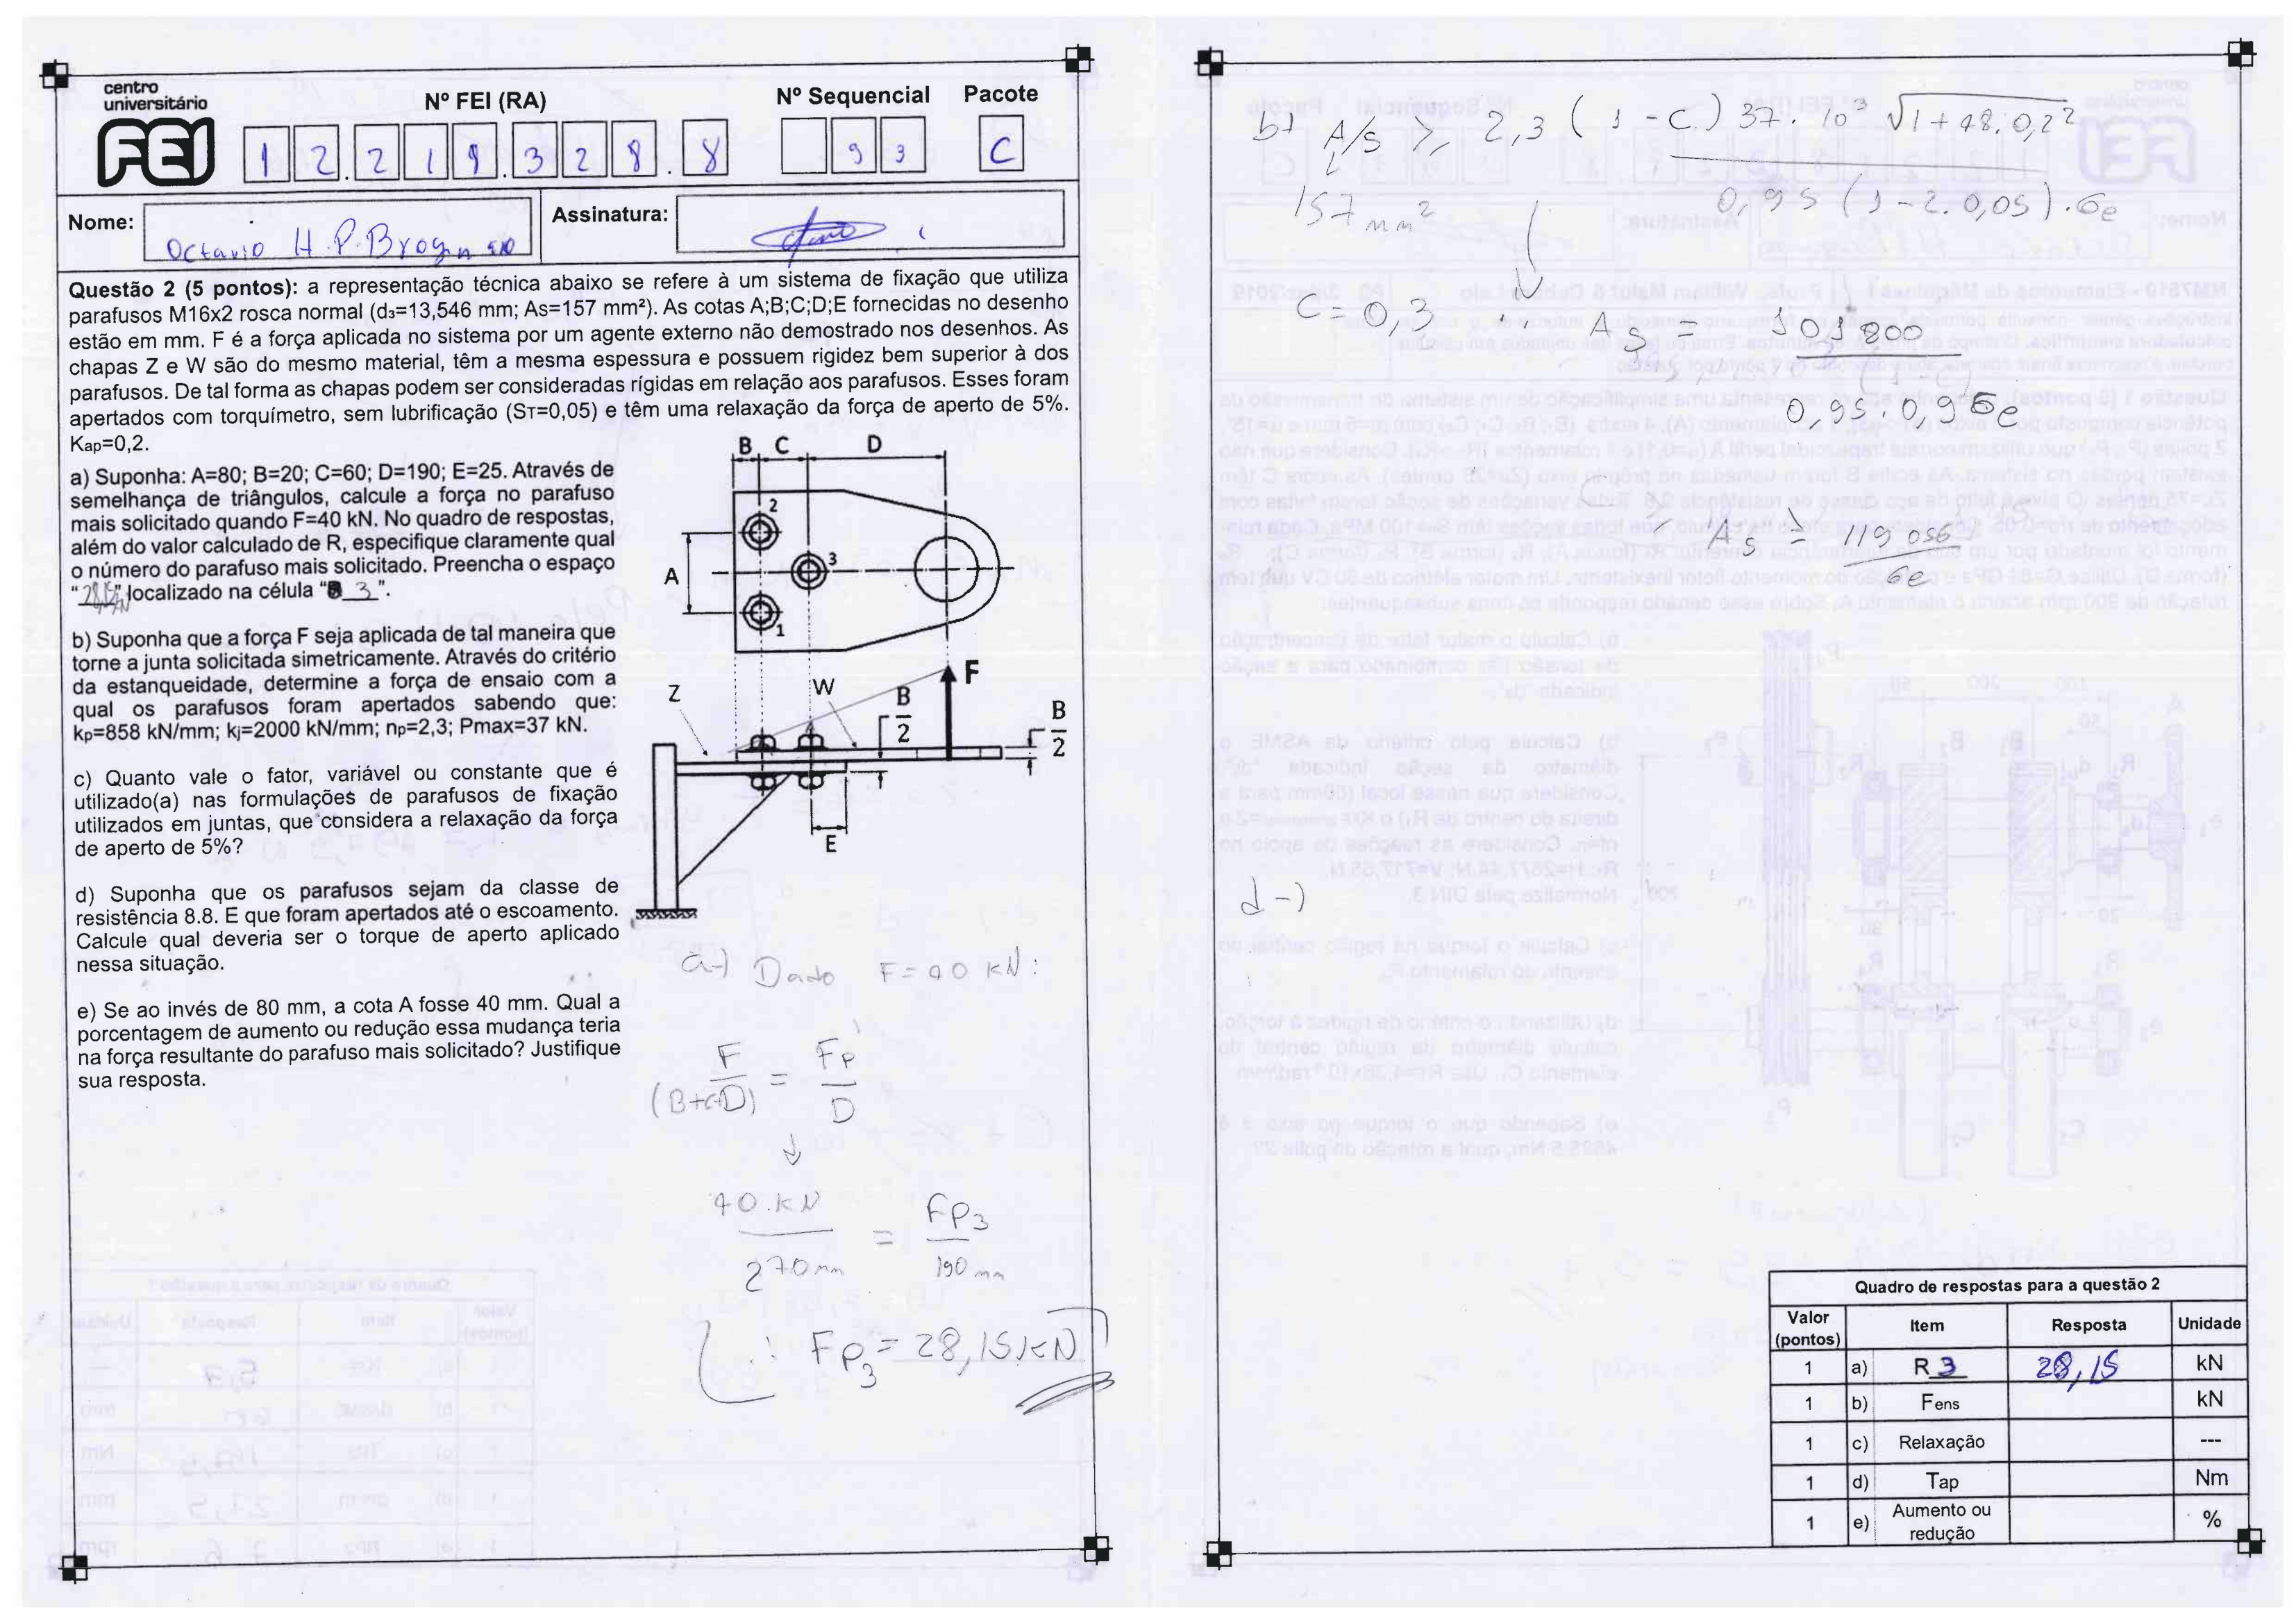 centro
universitário
FEI
Nº FEI (RA)
Nº Sequencial
Pacote
1 2 . 2 1 9 . 3 2 8 . 8
9 3
C
Nome:
Octavio H. P. Brog
Assinatura:
Questão 2 (5 pontos): a representação técnica abaixo se refere à um sistema de fixação que utiliza
parafusos M16x2 rosca normal (d₃=13,546 mm; As=157 mm²). As cotas A;B;C;D;E fornecidas no desenho
estão em mm. F é a força aplicada no sistema por um agente externo não demostrado nos desenhos. As
chapas Z e W são do mesmo material, têm a mesma espessura e possuem rigidez bem superior à dos
parafusos. De tal forma as chapas podem ser consideradas rígidas em relação aos parafusos. Esses foram
apertados com torquímetro, sem lubrificação (Sᴛ=0,05) e têm uma relaxação da força de aperto de 5%.
Kap=0,2.
a) Suponha: A=80; B=20; C=60; D=190; E=25. Através de
semelhança de triângulos, calcule a força no parafuso
mais solicitado quando F=40 kN. No quadro de respostas,
além do valor calculado de R, especifique claramente qual
o número do parafuso mais solicitado. Preencha o espaço
"28,15 kN" localizado na célula "R 3 ".
b) Suponha que a força F seja aplicada de tal maneira que
torne a junta solicitada simetricamente. Através do critério
da estanqueidade, determine a força de ensaio com a
qual os parafusos foram apertados sabendo que:
kp=858 kN/mm; kj=2000 kN/mm; np=2,3; Pmax=37 kN.
c) Quanto vale o fator, variável ou constante que é
utilizado(a) nas formulações de parafusos de fixação
utilizados em juntas, que considera a relaxação da força
de aperto de 5%?
d) Suponha que os parafusos sejam da classe de
resistência 8.8. E que foram apertados até o escoamento.
Calcule qual deveria ser o torque de aperto aplicado
nessa situação.
e) Se ao invés de 80 mm, a cota A fosse 40 mm. Qual a
porcentagem de aumento ou redução essa mudança teria
na força resultante do parafuso mais solicitado? Justifique
sua resposta.
B C D
2
A
3
1
F
Z
W
B/2
B/2
E
a-) Dado F = 40 kN:
F/(B+C+D) = Fp/D
40 kN/270 mm = Fp3/190 mm
∴ Fp3 = 28,15 kN
b) A/s ≥ 2,3 (1 - C) 37. 10³ √1 + 48. 0,2²
0,95 (1 - 2. 0,05) . σe
157 mm²
C = 0,3 ∴ As = 101800
0,95. 0,9 σe
As ≥ 119 056
σe
d-)
Quadro de respostas para a questão 2
Valor (pontos) Item Resposta Unidade
1 a) R 3 28,15 kN
1 b) Fens kN
1 c) Relaxação ---
1 d) Tap Nm
1 e) Aumento ou redução %